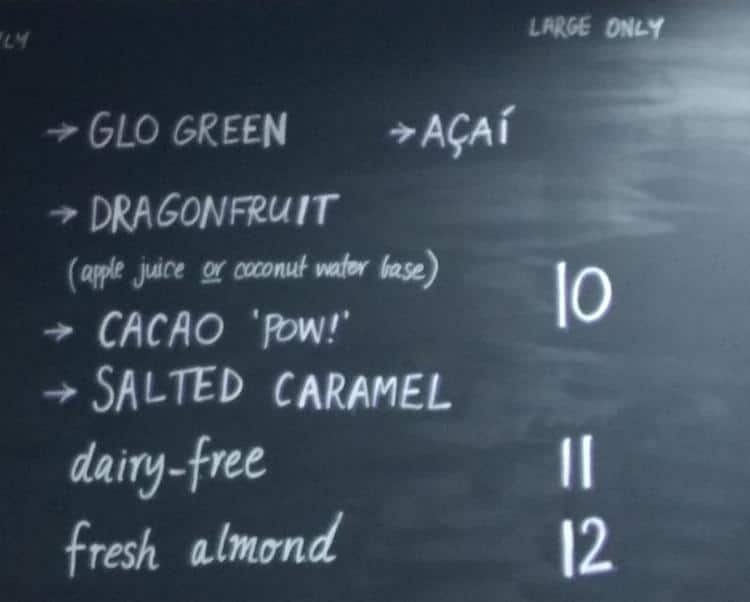 LARGE ONLY
→ GLO GREEN → AÇAÍ
→ DRAGONFRUIT
(apple juice or coconut water base)
10
→ CACAO 'POW!'
→ SALTED CARAMEL
dairy-free 11
fresh almond 12